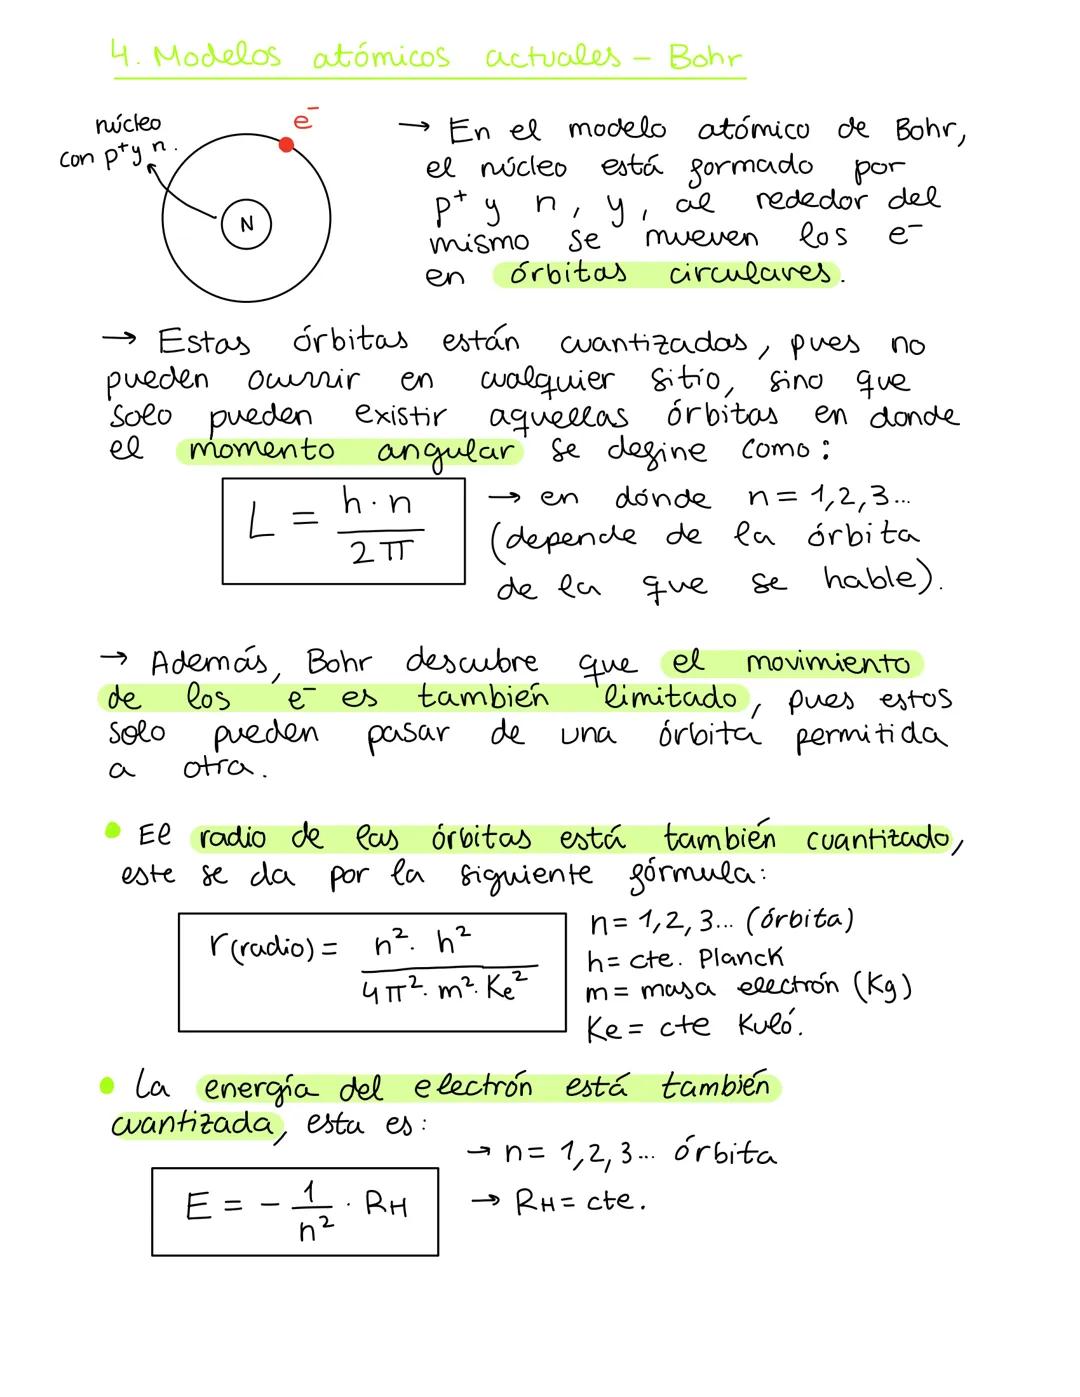 4. Modelos atómicos actuales - Bohr
núcleo
con p⁺ y n.
e⁻
N
→ En el modelo atómico de Bohr,
el núcleo está formado por
p⁺ y n, y, al rededor del
mismo se mueven los e⁻
en órbitas circulares.
→ Estas órbitas están cuantizadas, pues no
pueden ocurrir en cualquier sitio, sino que
solo pueden existir aquellas órbitas en donde
el momento angular se define como:
L = h·n / 2π
→ en dónde n = 1,2,3...
(depende de la órbita
de la que se hable).
→ Además, Bohr descubre que el movimiento
de los e⁻ es también limitado, pues estos
solo pueden pasar de una órbita permitida
a otra.
• El radio de las órbitas está también cuantizado,
este se da por la siguiente fórmula:
r(radio) = n²·h² / 4π²·m²·Ke²
n = 1,2,3... (órbita)
h = cte. Planck
m = masa electrón (Kg)
Ke = cte Kuló.
• La energía del electrón está también
cuantizada, esta es:
E = - 1/n² · RH
→ n = 1,2,3... órbita
→ RH = cte.